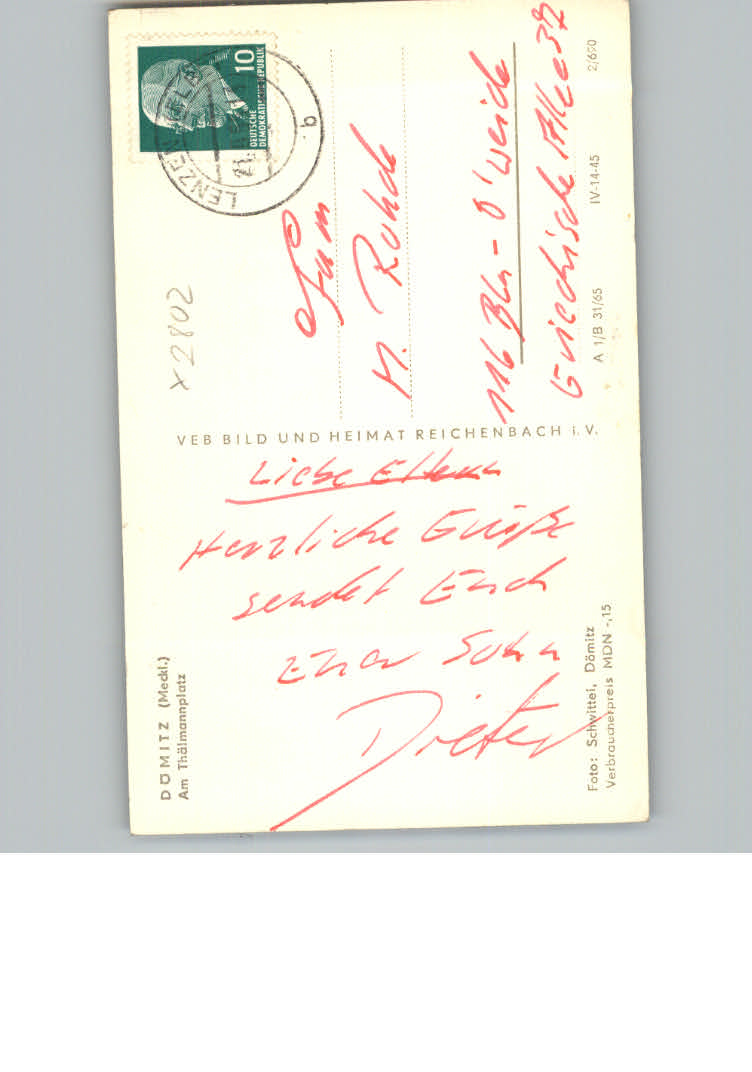 DÖMITZ (Meckl.)
Am Thälmannplatz
Liebe Eltern
Herzliche Grüße
sendet Euch
Euer Sohn
Dieter
Foto: Schwittei, Dömitz
Verbraucherpreis MDN -,15
VEB BILD UND HEIMAT REICHENBACH i. V.
x 2802
DEUTSCHE
DEMOKRATISCHE REPUBLIK
10
LENZEN
b
Fam
H. Rohde
116 Bln - O'weide
Griechische Allee 37
A 1/B 31/65 IV-14-45 2/690